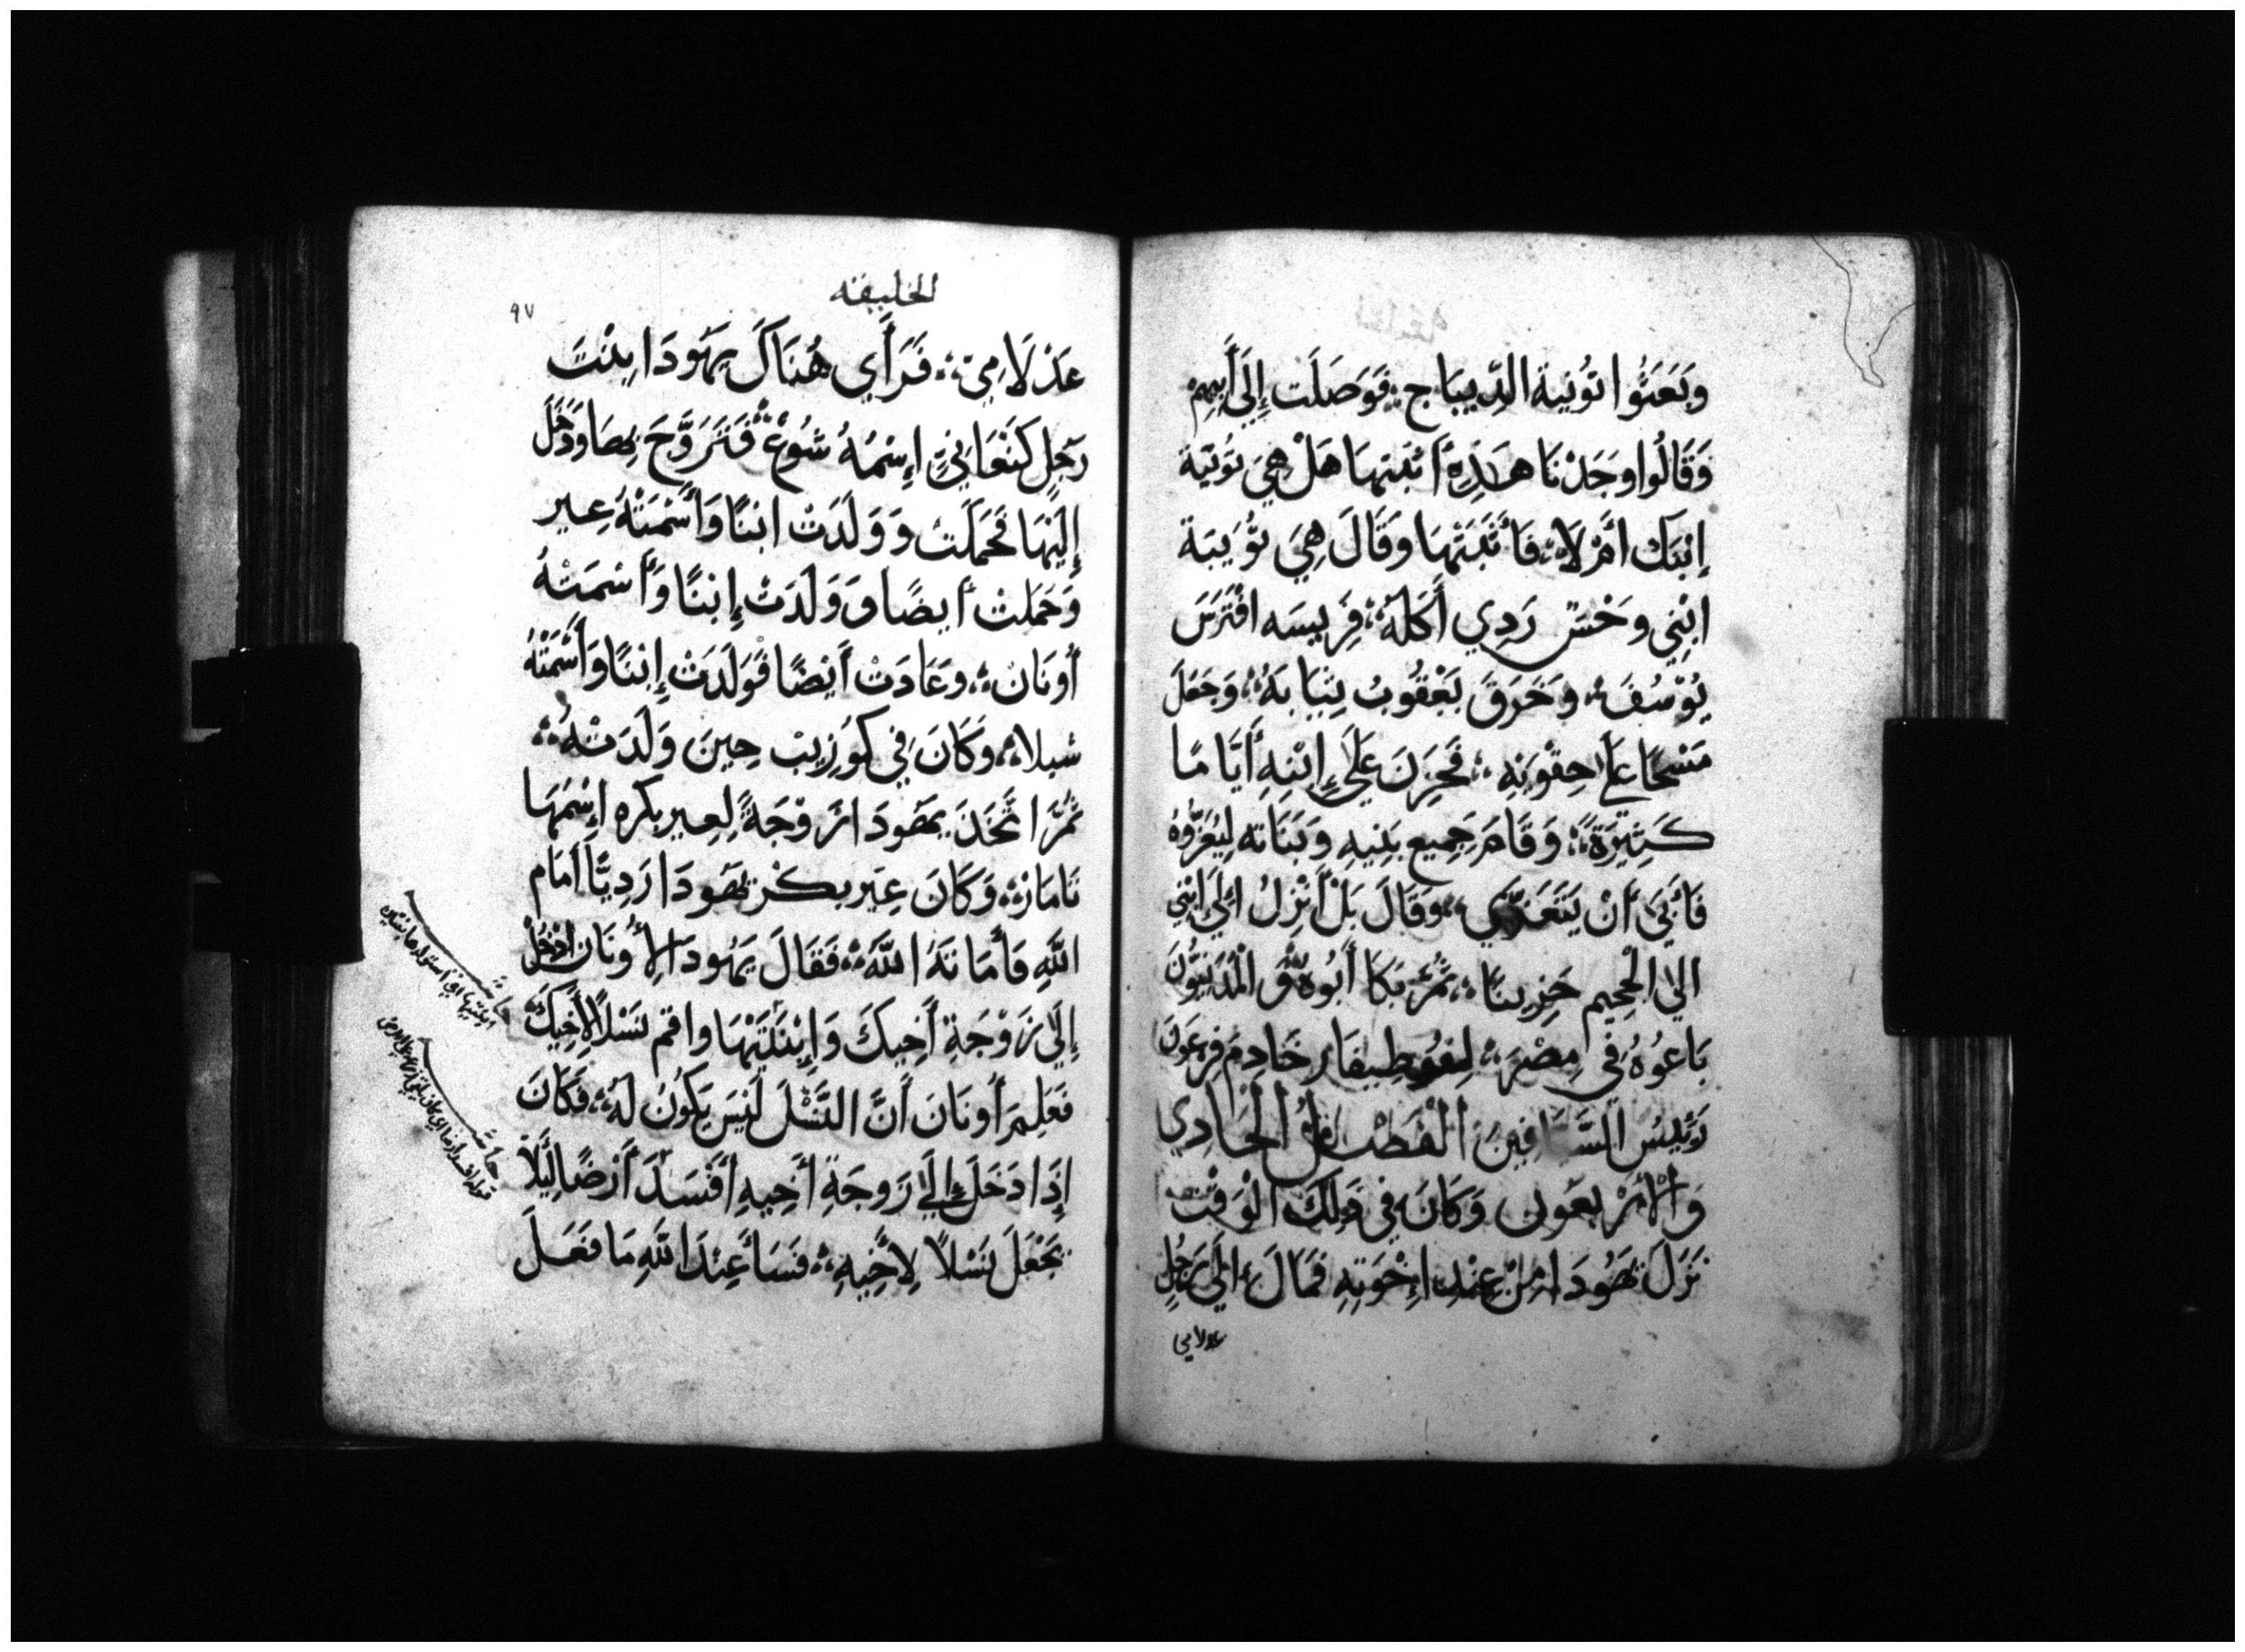 وَبَعَثُوا تُوُنِية الدِّيبَاج فَوَصَلَت إِلَى أَبِيهِمْ
وَقَالُوا وَجَدْنَا هَذِهِ أثبتهَا هَلْ هِيَ ثوَبيَة
إبْنِكَ أمْ لَا فَأَثْبَتَهَا وَقَالَ هِيَ ثُوَيبَة
ابْنِي وَحْش رَدِي أَكَلَهُ فَرِيسَه افْتَرَسَ
يُوْسُفَ وَخَرَقَ يَعْقُوبُ ثِيَابَهُ وَجَعَلَ
مَسْحًا عَلَى حِقْوَيْهِ فَحَزِنَ عَلَى إِبْنِهِ أَيَّامًا
كَثِيْرَةً وَقَامَ جَمِيع بَنِيهِ وَبَنَاته لِيُعَزُّوهُ
فَأَبَى أَنْ يَتَعَزَّي وَقَالَ بَلْ أَنْزِلُ الَى ابْنِي
الي الْجَحِيم حَزِينًا ثُمَّ بَكَا أَبُوهُ وَ الْمَدْيَنِيُّونَ
بَاعُوُهُ فِي مِصْرَ لِفُوطِيفَار خَادِمِ فِرعَوْنَ
رَئِيسُ السَّيَّافِينَ الْفَصْل الْحَادِي
وَالْأَرْبعَون وَكَانَ فِي ذَلِكَ الْوَقْت
نَزَلَ يَهُودَا مِنْ عِنْدِ إِخْوَتِهِ فَمَالَ الَى رَجُلٍ
عدلامي
الخليقه
٩٧
عَدْلَامِيّ فَرَأَي هُنَاكَ يَهُودَا ابنْتَ
رَجُلٍ كَنْعَانِيّ إِسْمُهُ شُوُعْ فَتَزَوَّجَ بِهَا وَدَخَلَ
إِلَيْهَا فَحَمَلَتْ وَوَلَدَتْ ابْنًا وَأَسْمَتْهُ عِير
وَحَمَلَتْ أيضًا وَوَلَدَتْ إِبْنًا وَأَسْمَتْهُ
أُونَانْ وَعَادَتْ أَيْضًا فَوَلَدَتْ إِبْنًا وَأَسْمَتْهُ
شيلا وَكَانَ فِي كوَزِيبْ حِينَ وَلَدَتْهُ
ثُمَّ اتَّخَذَ يَهُودَا زَوْجَةً لِعِير بكره إِسْمُهَا
تَامَارْ وَكَانَ عِير بكْر يَهُودَا رَدِيًّا أَمَام
اللَّهِ فَأَمَاتَهُ اللَّهُ فَقَالَ يَهُودَا لِأُونَان ادْخُلْ
إِلَى زَوْجَةِ أَخِيكَ وَإِبْتَنيْهَا وَاقم نَسْلًا لِأَخِيكَ
فَعَلِمَ أُونَانَ أَنَّ النَّسْلَ لَيْسَ يَكُونُ لَهُ فَكَانَ
إِذَا دَخَلَ إِلَي زَوجَةِ أَخِيهِ أَفْسَدَ أَرْضًا لِيَلَّا
يَجْعَلَ نَسْلًا لِأَخِيهِ فَسَأَ عِنْدَ اللَّهِ مَا فَعَلَ